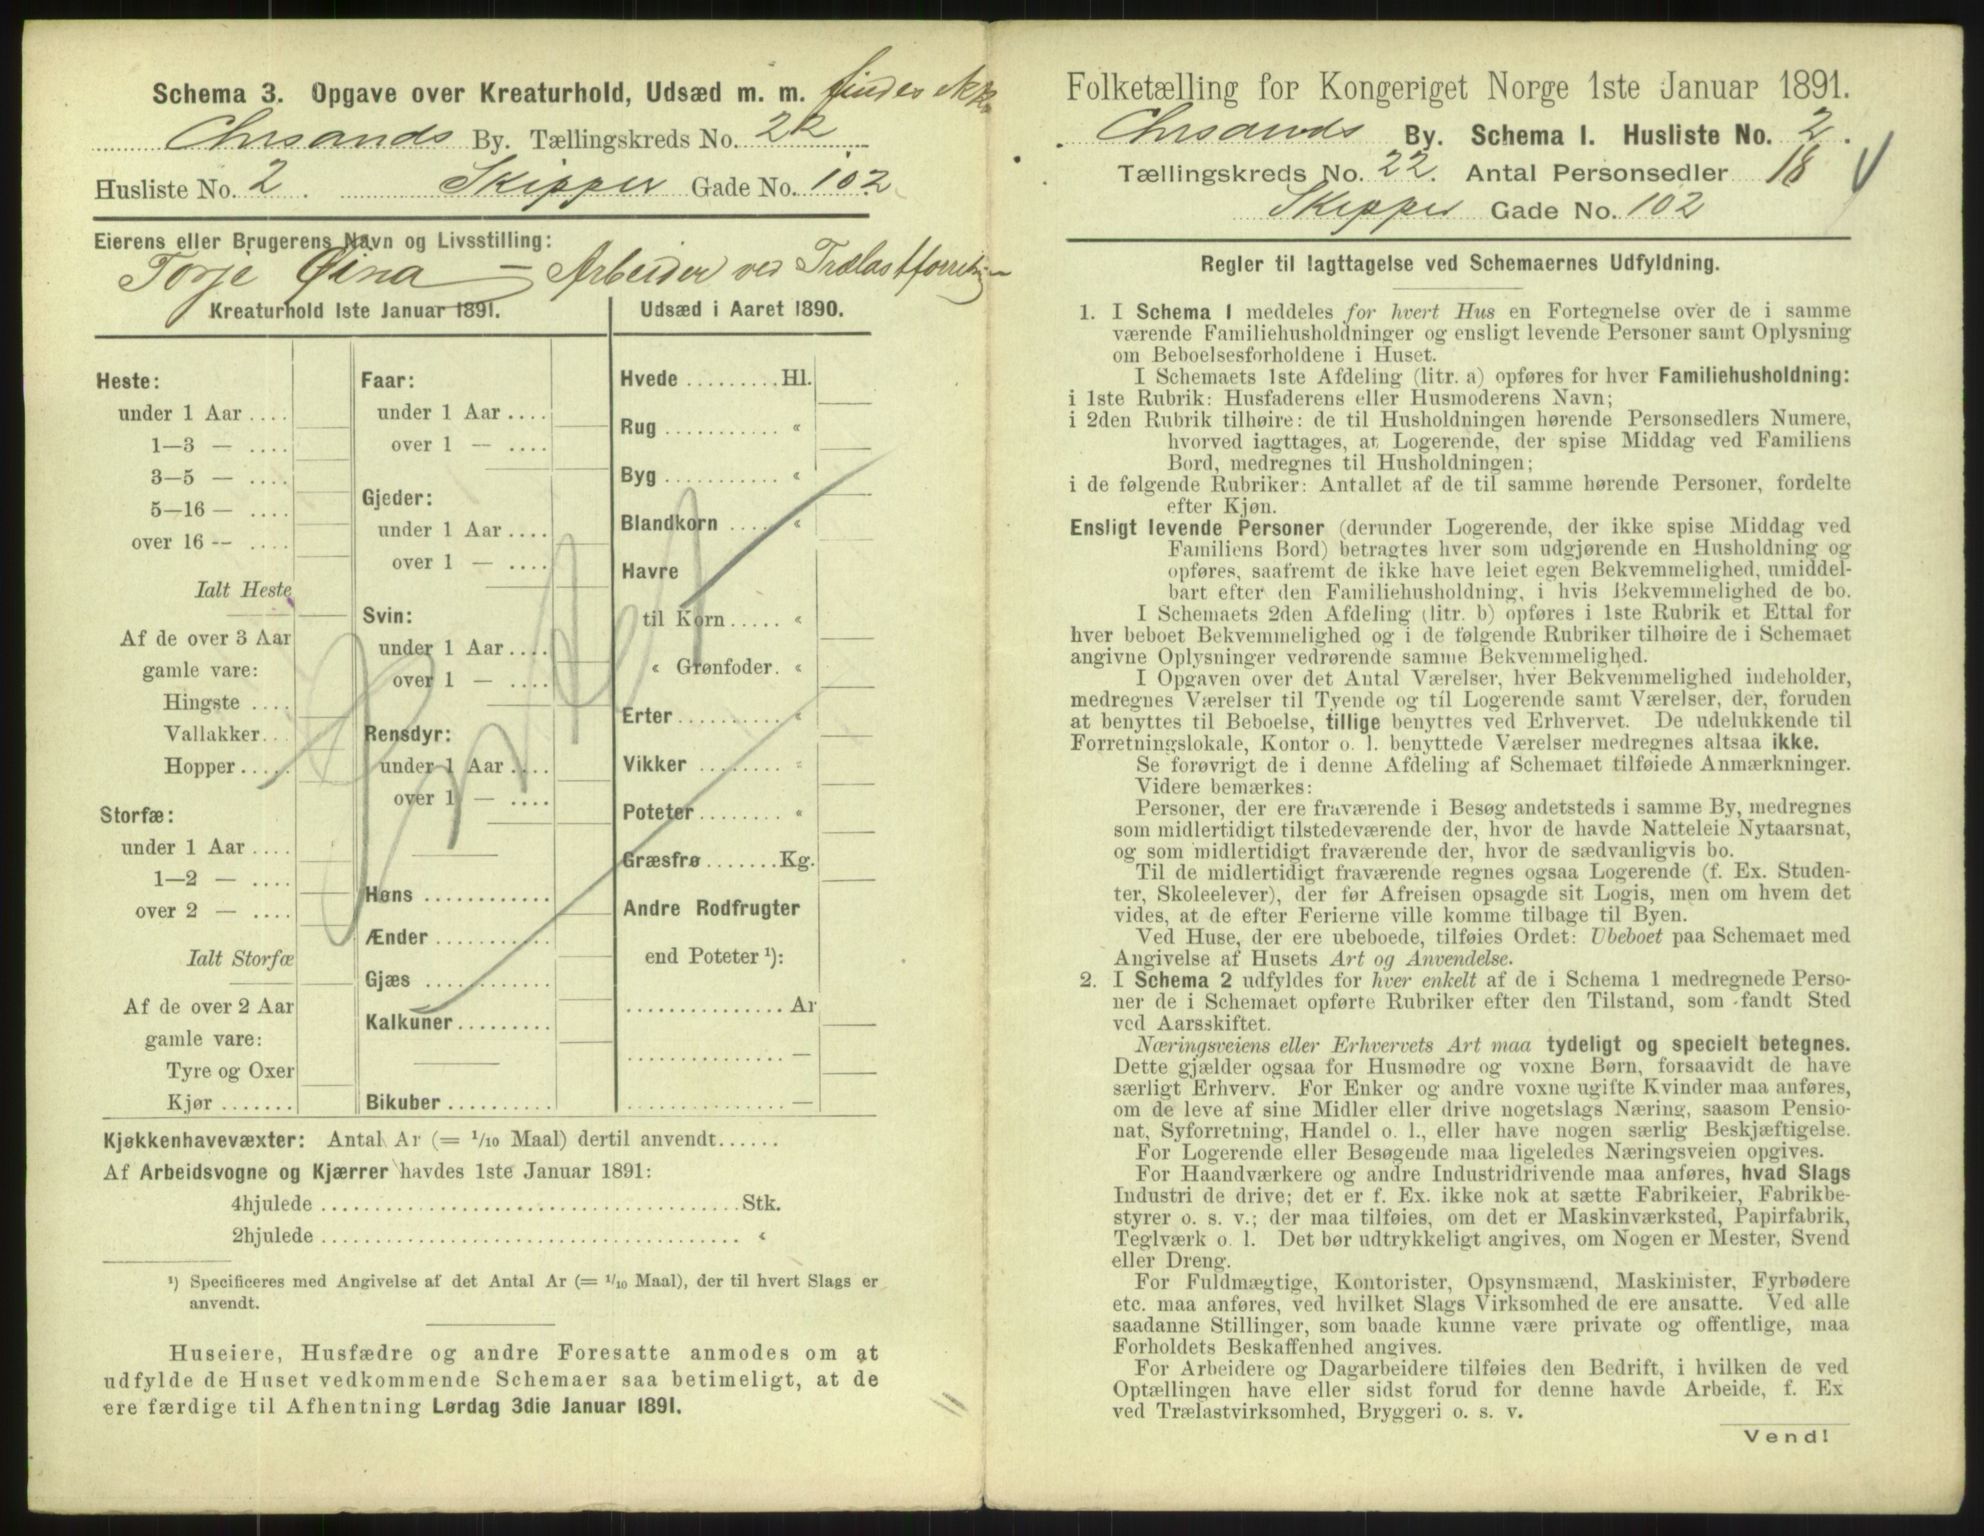 Schema 3. Opgave over Kreaturhold, Udsæd m. m. findes ikke
Chrsands By. Tællingskreds No. 22
Husliste No. 2. Skipper Gade No. 102
Eierens eller Brugerens Navn og Livsstilling:
Torje Øina — Arbeider ved Trælastforretn
Kreaturhold 1ste Januar 1891. Udsæd i Aaret 1890.
Heste:
under 1 Aar ....
1—3 — ....
3—5 — ....
5—16 — ....
over 16 -- ....
Ialt Heste
Af de over 3 Aar
gamle vare:
Hingste ....
Vallakker..
Hopper.....
Storfæ:
under 1 Aar ....
1—2 — ....
over 2 — ....
Ialt Storfæ
Af de over 2 Aar
gamle vare:
Tyre og Oxer
Kjør .......
Faar:
under 1 Aar ....
over 1 — ....
Gjeder:
under 1 Aar ....
over 1 — ....
Svin:
under 1 Aar ....
over 1 — ....
Rensdyr:
under 1 Aar ....
over 1 — ....
Høns ............
Ænder ...........
Gjæs ............
Kalkuner .........
Bikuber ..........
Hvede .........Hl.
Rug ........... «
Byg ........... «
Blandkorn .... «
Havre
til Korn ..... «
« Grønfoder. «
Erter.......... «
Vikker ........ «
Poteter........ «
Græsfrø .......Kg.
Andre Rodfrugter
end Poteter ¹):
............... Ar
............... —
............... —
Kjøkkenhavevæxter: Antal Ar (= 1/10 Maal) dertil anvendt......
Af Arbeidsvogne og Kjærrer havdes 1ste Januar 1891:
4hjulede .....................................Stk.
2hjulede ..................................... «
¹) Specificeres med Angivelse af det Antal Ar (= 1/10 Maal), der til hvert Slags er
anvendt.
Huseiere, Husfædre og andre Foresatte anmodes om at
udfylde de Huset vedkommende Schemaer saa betimeligt, at de
ere færdige til Afhentning Lørdag 3die Januar 1891.
Folketælling for Kongeriget Norge 1ste Januar 1891.
Chrsands By. Schema I. Husliste No. 2.
Tællingskreds No. 22. Antal Personsedler 18
Skipper Gade No. 102
Regler til Iagttagelse ved Schemaernes Udfyldning.
1. I Schema I meddeles for hvert Hus en Fortegnelse over de i samme
værende Familiehusholdninger og ensligt levende Personer samt Oplysning
om Beboelsesforholdene i Huset.
I Schemaets 1ste Afdeling (litr. a) opføres for hver Familiehusholdning:
i 1ste Rubrik: Husfaderens eller Husmoderens Navn;
i 2den Rubrik tilhøire: de til Husholdningen hørende Personsedlers Numere,
hvorved iagttages, at Logerende, der spise Middag ved Familiens
Bord, medregnes til Husholdningen;
i de følgende Rubriker: Antallet af de til samme hørende Personer, fordelte
efter Kjøn.
Ensligt levende Personer (derunder Logerende, der ikke spise Middag ved
Familiens Bord) betragtes hver som udgjørende en Husholdning og
opføres, saafremt de ikke have leiet egen Bekvemmelighed, umiddel-
bart efter den Familiehusholdning, i hvis Bekvemmelighed de bo.
I Schemaets 2den Afdeling (litr. b) opføres i 1ste Rubrik et Ettal for
hver beboet Bekvemmelighed og i de følgende Rubriker tilhøire de i Schemaet
angivne Oplysninger vedrørende samme Bekvemmelighed.
I Opgaven over det Antal Værelser, hver Bekvemmelighed indeholder,
medregnes Værelser til Tyende og til Logerende samt Værelser, der, foruden
at benyttes til Beboelse, tillige benyttes ved Erhvervet. De udelukkende til
Forretningslokale, Kontor o. l. benyttede Værelser medregnes altsaa ikke.
Se forøvrigt de i denne Afdeling af Schemaet tilføiede Anmærkninger.
Videre bemærkes:
Personer, der ere fraværende i Besøg andetsteds i samme By, medregnes
som midlertidigt tilstedeværende der, hvor de havde Natteleie Nytaarsnat,
og som midlertidigt fraværende der, hvor de sædvanligvis bo.
Til de midlertidigt fraværende regnes ogsaa Logerende (f. Ex. Studen-
ter, Skoleelever), der før Afreisen opsagde sit Logis, men om hvem det
vides, at de efter Ferierne ville komme tilbage til Byen.
Ved Huse, der ere ubeboede, tilføies Ordet: Ubeboet paa Schemaet med
Angivelse af Husets Art og Anvendelse.
2. I Schema 2 udfyldes for hver enkelt af de i Schema 1 medregnede Perso-
ner de i Schemaet opførte Rubriker efter den Tilstand, som fandt Sted
ved Aarsskiftet.
Næringsveiens eller Erhvervets Art maa tydeligt og specielt betegnes.
Dette gjælder ogsaa for Husmødre og voxne Børn, forsaavidt de have
særligt Erhverv. For Enker og andre voxne ugifte Kvinder maa anføres,
om de leve af sine Midler eller drive nogetslags Næring, saasom Pensio-
nat, Syforretning, Handel o. l., eller have nogen særlig Beskjæftigelse.
For Logerende eller Besøgende maa ligeledes Næringsveien opgives.
For Haandværkere og andre Industridrivende maa anføres, hvad Slags
Industri de drive; det er f. Ex. ikke nok at sætte Fabrikeier, Fabrikbe-
styrer o. s. v.; der maa tilføies, om det er Maskinværksted, Papirfabrik,
Teglværk o. l. Det bør udtrykkeligt angives, om Nogen er Mester, Svend
eller Dreng.
For Fuldmægtige, Kontorister, Opsynsmænd, Maskinister, Fyrbødere
etc. maa anføres, ved hvilket Slags Virksomhed de ere ansatte. Ved alle
saadanne Stillinger, som baade kunne være private og offentlige, maa
Forholdets Beskaffenhed angives.
For Arbeidere og Dagarbeidere tilføies den Bedrift, i hvilken de ved
Optællingen have eller sidst forud for denne havde Arbeide, f. Ex
ved Trælastvirksomhed, Bryggeri o. s. v.
Vend!